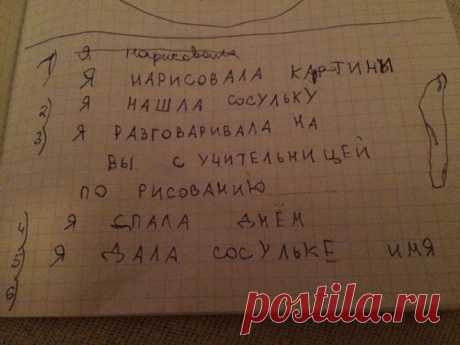 1) Я нарисовала
Я НАРИСОВАЛА КАРТИНЫ
2) Я НАШЛА СОСУЛЬКУ
3) Я РАЗГОВАРИВАЛА НА
ВЫ С УЧИТЕЛЬНИЦЕЙ
ПО РИСОВАНИЮ
4) Я СПАЛА ДНЁМ
5) Я ДАЛА СОСУЛЬКЕ ИМЯ
6)
postila.ru